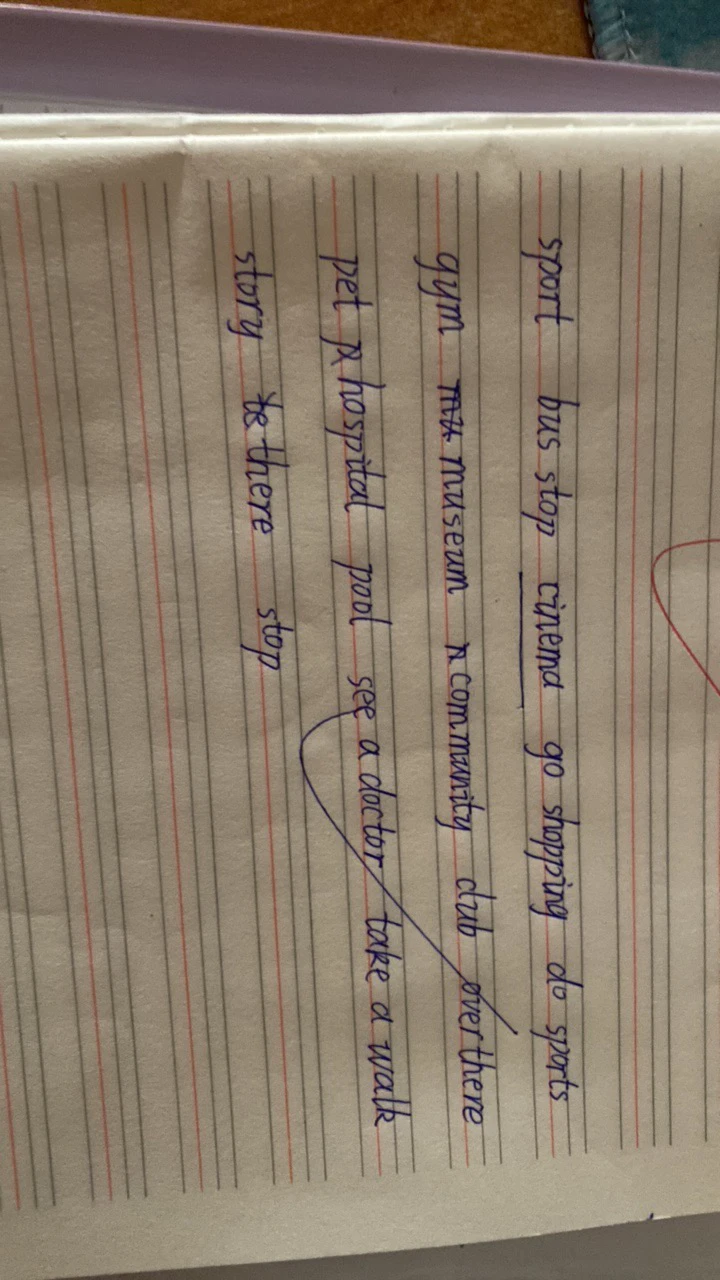 sport bus stop cinema go shopping do sports
gym museum community club over there
pet hospital pool see a doctor take a walk
story there stop